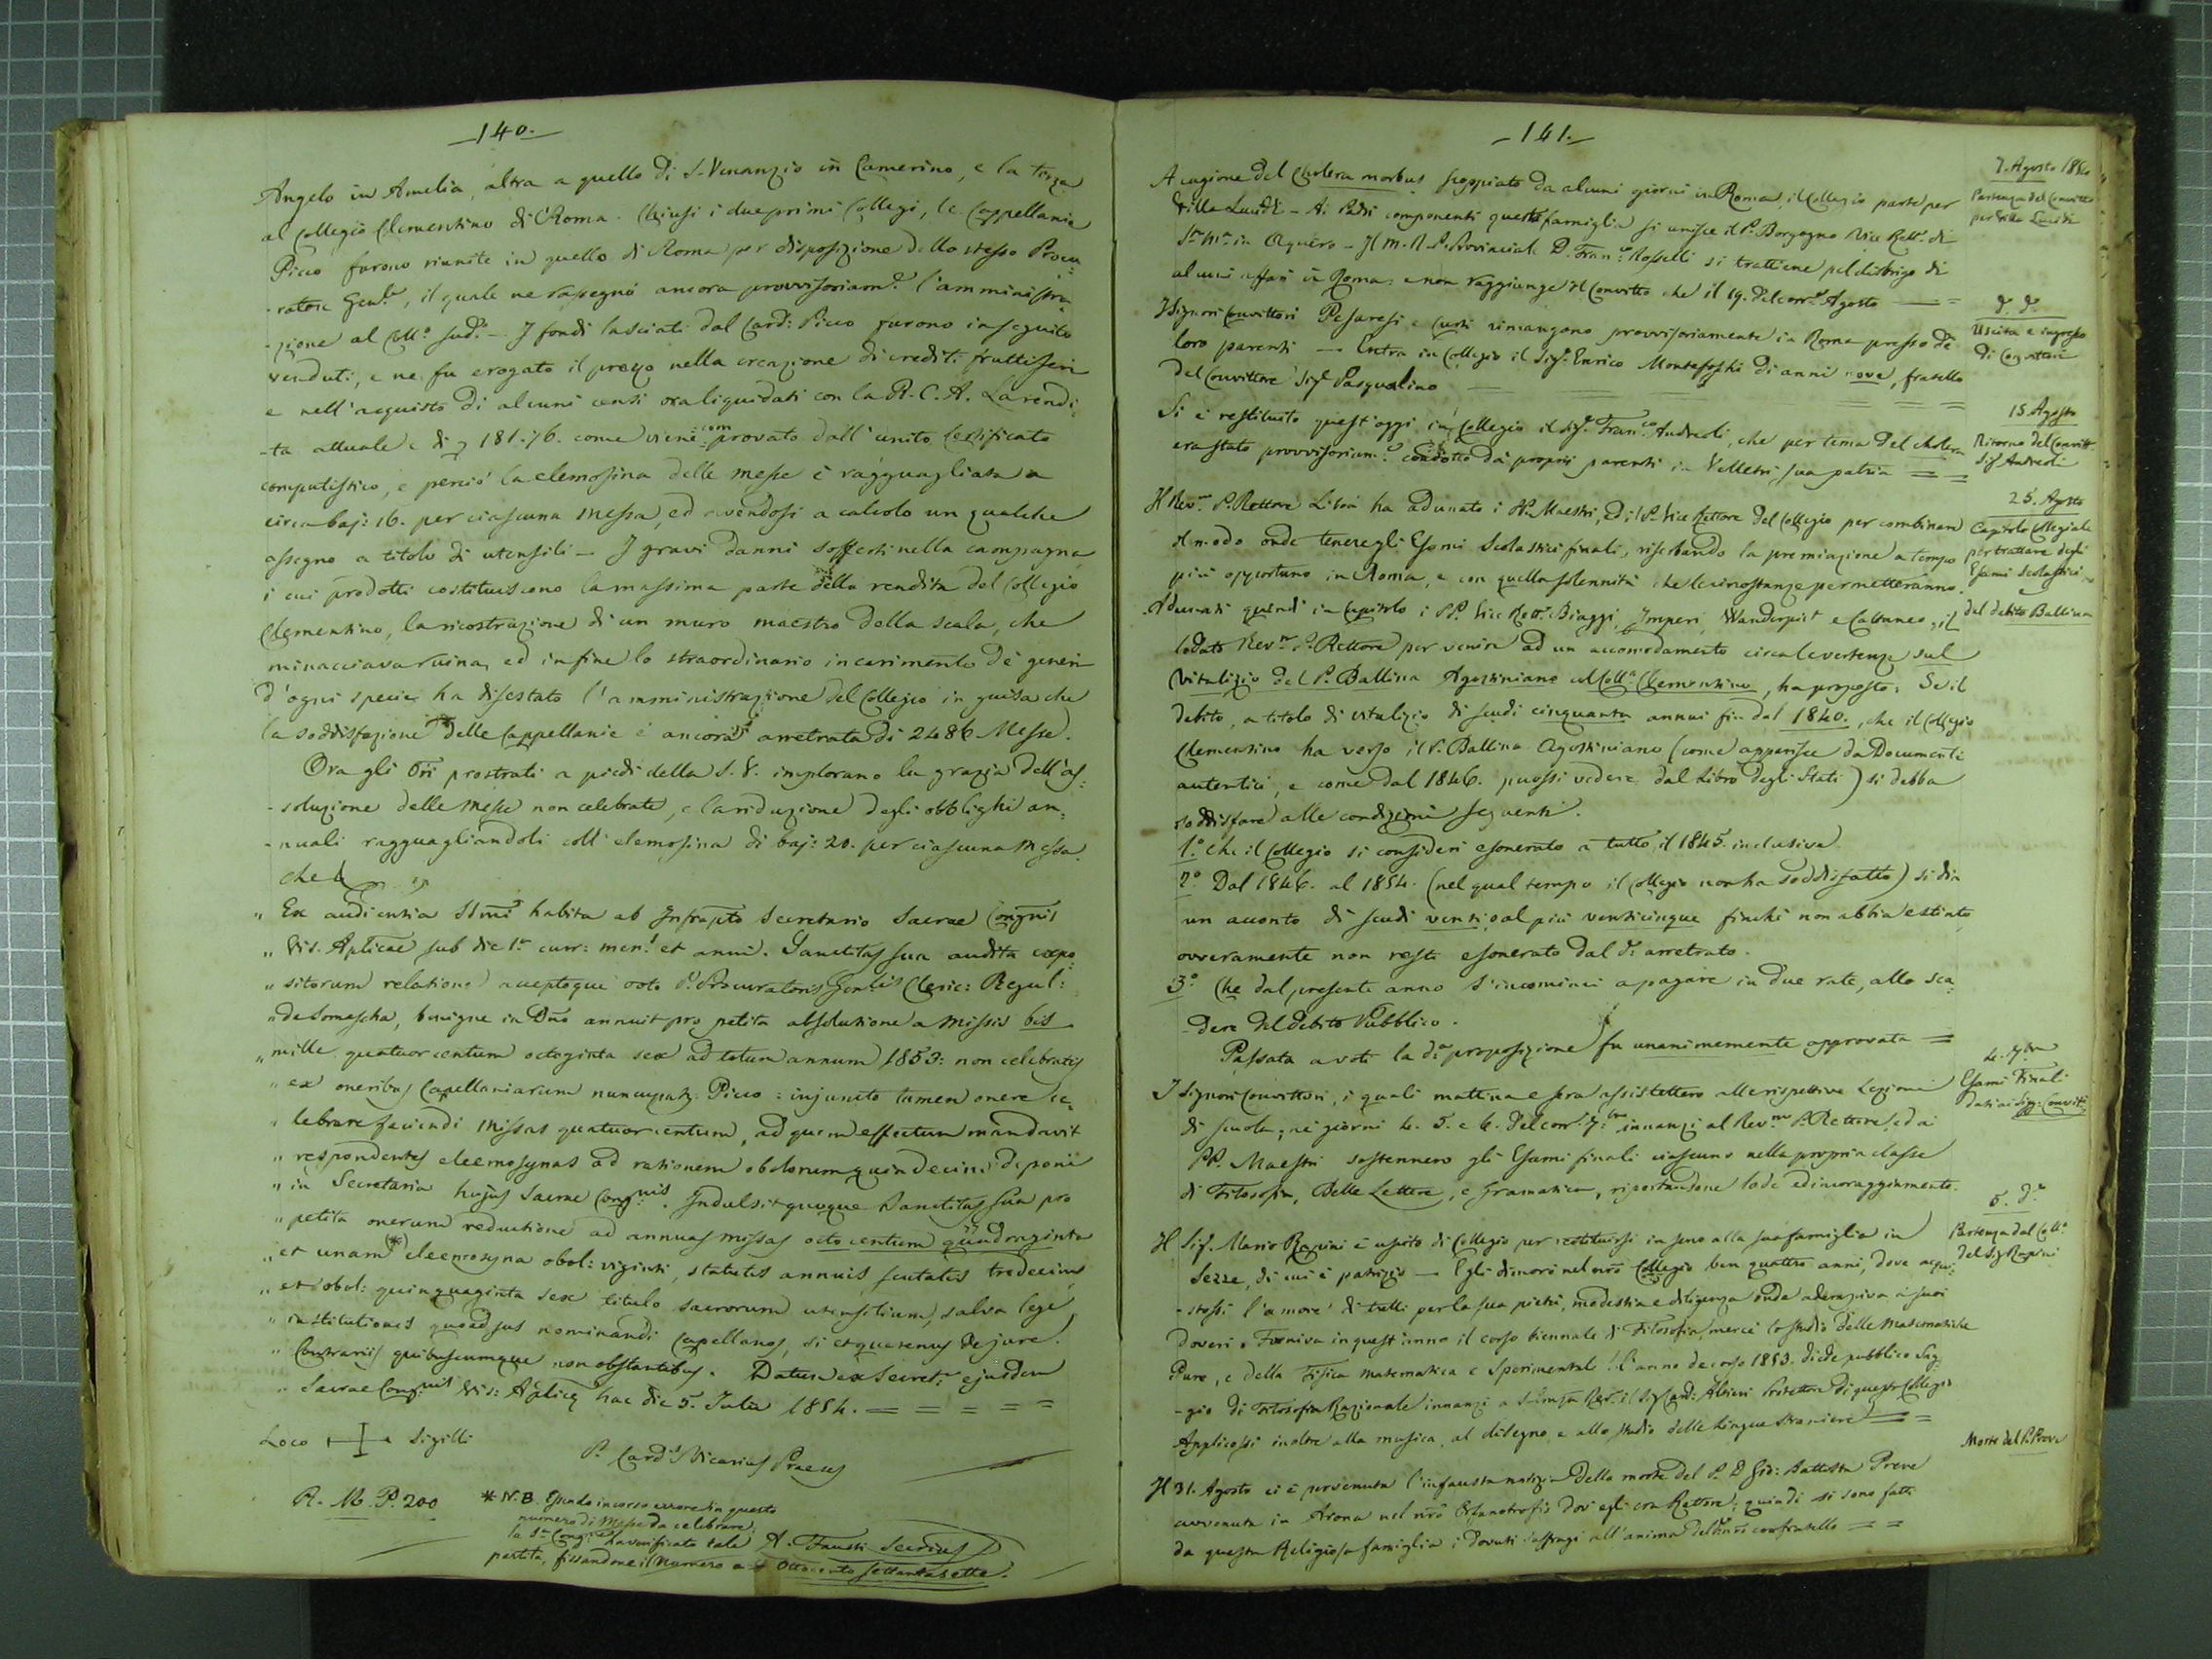 —140.—
Angelo in Amelia, altra a quello di S. Venanzio in Camerino, e la terza
al Collegio Clementino di Roma. Chiusi i due primi Collegi, le Cappellanie
Picco furono riunite in quello di Roma per disposizione dello stesso Procu-
-ratore Genle, il quale ne rassegnò ancora provvisoriamte l'amministra
-zione al Collo sudo. — I fondi lasciati dal Card: Picco furono in seguito
venduti, e ne fu erogato il prezzo nella creazione di crediti fruttiferi
e nell'acquisto di alcuni censi ora liquidati con la R. C. A. La rendi-
-ta attuale è di 181.76. come viene comprovato dall'unito Certificato
computistico, e perciò la elemosina delle messe è ragguagliata a
circa baj: 16. per ciascuna Messa, ed avendosi a calcolo un qualche
assegno a titolo di utensili — I gravi danni sofferti nella campagna
i cui prodotti costituiscono la massima parte della rendita del Collegio
Clementino, la ricostruzione di un muro maestro della scala, che
minacciava ruina, ed infine lo straordinario incarimento de' generi
d'ogni specie ha disestato l'amministrazione del Collegio in guisa che
la soddisfazione delle Cappellanie è ancora arretrata di 2486 Messe.
Ora gli Ori prostrati a piedi della S. V. implorano la grazia dell'as-
-soluzione delle Messe non celebrate, e la riduzione degli obblighi an-
-nuali ragguagliandoli coll'elemosina di baj: 20. per ciascuna Messa.
che
„ Ex audientia SSmi habita ab Infrapto Secretario Sacrae Congnis
„ Vis. Aplicae sub die 1a curr: men: et anni. Sanctitas sua audita expo-
„ sitorum relatione acceptoque voto P. Procuratoris Genlis Cleric: Regul:
„ de Somascha, benigne in Dno annuit pro petita absolutione a Missis bis
„ mille quatuor centum octoginta sex ad totum annum 1853: non celebratis
„ ex oneribus Capellaniarum nuncupatz. Picco: injuncto tamen onere ce-
„ lebrare faciendi Missas quatuor centum, ad quem effectum mandavit
„ respondentes eleemosynas ad rationem obolorum quindecim deponi
„ in Secretaria hujus Sacrae Congnis. Indulsit quoque Sanctitas Sua pro
„ petita onerum reductione ad annuas missas octo centum quadraginta
„ et unam (*) eleemosyna obol: viginti, statutis annuis scutatis tredecim
„ et obol: quinquaginta sex titulo sacrorum utensilium, salva lege
„ institutionis quoad jus nominandi Capellanos, si et quatenus de jure.
„ Contrariis quibuscumque non obstantibus. Datum ex Secreta ejusdem
„ Sacrae Congnis Vis: Aplicae hac die 5. Julii 1854. = = = = =
Loco + Sigilli
P. Cardlis Vicarius Praeus
R. M. P. 200
* N.B. Essendo incorso errore in questo
numero di Messe da celebrare,
la Sa Congne ha verificato tale
partita, fissandone il numero a Ottocento settantasette.
A. Fausti Secrius
—141.—
A cagione del Cholera morbus scoppiato da alcuni giorni in Roma, il Collegio parte per
Villa Lucidi — Ai Padri componenti questa famiglia si unisce il P. Borgogno Vice Rettre di
Sta Ma in Aquiro — Il M. R. P. Provinciale D. Franco Rosselli si trattiene pel disbrigo di
alcuni affari in Roma, e non raggiunge il Convitto che il 19. del corre Agosto — =
I Signori Convittori Pesaresi e Curti rimangono provvisoriamente in Roma presso de'
loro parenti — Entra in Collegio il Sigr. Enrico Monteforti di anni nove, fratello
del Convittore Sigr Pasqualino — = = =
Si è restituito quest'oggi in Collegio il Sigr. Franco Andreoli, che per tema del cholera
era stato provvisoriamte condotto da' propri parenti in Velletri sua patria = =
Il Revmo P. Rettore Libois ha adunato i PP. Maestri, ed il P. Vice Rettore del Collegio per combinare
il modo onde tenere gli Esami Scolastici finali, riserbando la premiazione a tempo
più opportuno in Roma, e con quella solennità che le circostanze permetteranno.
Adunati quindi in Capitolo i PP. Vice Rettre Biaggi, Imperi, Wanderpit e Cattaneo, il
lodato Revmo P. Rettore per venire ad un accomodamento circa le vertenze sul
Vitalizio del P. Ballina Agostiniano col Collo Clementino, ha proposto: Se il
debito, a titolo di vitalizio di scudi cinquanta annui fin dal 1840., che il Collegio
Clementino ha verso il P. Ballina Agostiniano (come apparisce da Documenti
autentici, e come dal 1846. puossi vedere dal Libro degli Stati) si debba
soddisfare alle condizioni seguenti.
1.o Che il Collegio si consideri esonerato a tutto il 1845. inclusive.
2.o Dal 1846. al 1854. (nel qual tempo il Collegio non ha soddisfatto) si dia
un acconto di scudi venti, o al più venticinque finchè non abbia estinto,
ovveramente non resti esonerato dal do arretrato.
3.o Che dal presente anno s'incominci a pagare in due rate, allo sca-
-dere del debito Pubblico.
Passata a voti la da proposizione fu unanimemente approvata =
I Signori Convittori, i quali mattina e sera assistettero alle rispettive Lezioni
di scuola, ne' giorni 4. 5. e 6. del corre 7bre innanzi al Revmo P. Rettore, ed ai
PP. Maestri sostennero gli Esami finali ciascuno nella propria classe
di Filosofia, Belle Lettere, e Gramatica, riportandone lode ed incoraggiamento.
Il Sigr. Mario Rapini è uscito di Collegio per restituirsi in seno alla sua famiglia in
Sezze, di cui è patrizio — Egli dimorò nel nro Collegio ben quattro anni, dove acqui-
-stossi l'amore di tutti per la sua pietà, modestia e diligenza onde adempiva i suoi
doveri. Forniva in quest'anno il corso biennale di Filosofia, mercè lo studio delle Matematiche
Pure, e della Fisica Matematica e Sperimentale. L'anno decorso 1853. diede pubblico Sag-
-gio di Filosofia Razionale innanzi a S. Emza Rma il Sigr Card: Altieri Protettore di questo Collegio
Applicossi inoltre alla musica, al disegno, e allo studio delle Lingue Straniere = =
Il 31. Agosto ci è pervenuta l'infausta notizia della morte del P. D. Gio: Battista Prove
avvenuta in Arona nel nro Orfanotrofio dov'egli era Rettore; quindi si sono fatti
da questa Religiosa famiglia i dovuti suffragi all'anima del do nro confratello = =
7. Agosto
Partenza del Convitto
per Villa Lucidi
do. do.
Uscita e ingresso
di Convittori
15. Agosto
Ritorno del Convitt.
Sigr Andreoli
25. Agosto
Capitolo Collegiale
per trattare degli
Esami Scolastici, e
del debito Ballina
4. 7bre
Esami Finali
dati ai Sigg: Convitti
5. do
Partenza dal Collo
del Sigr Rapini
Morte del P. Prove